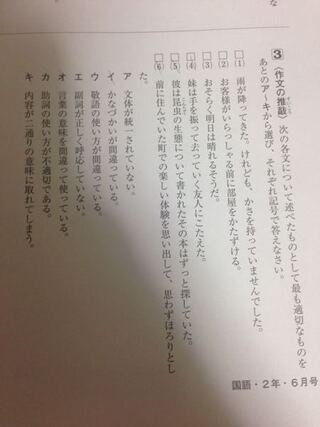 3 〈作文の推敲〉 次の各文について述べたものとして最も適切なものを
あとのア〜キから選び、それぞれ記号で答えなさい。
□(1) 雨が降ってきた。けれども、かさを持っていませんでした。
□(2) お客様がいらっしゃる前に部屋をかたずける。
□(3) おそらく明日は晴れるそうだ。
□(4) 妹は手を振って去っていく友人にこたえた。
□(5) 彼は昆虫の生態について書かれたその本はずっと探していた。
□(6) 前に住んでいた町での楽しい体験を思い出して、思わずほろりとし
た。
ア 文体が統一されていない。
イ かなづかいが間違っている。
ウ 敬語の使い方が間違っている。
エ 副詞が正しく呼応していない。
オ 言葉の意味を間違って使っている。
カ 助詞の使い方が不適切である。
キ 内容が二通りの意味に取れてしまう。
国語・2年・6月号